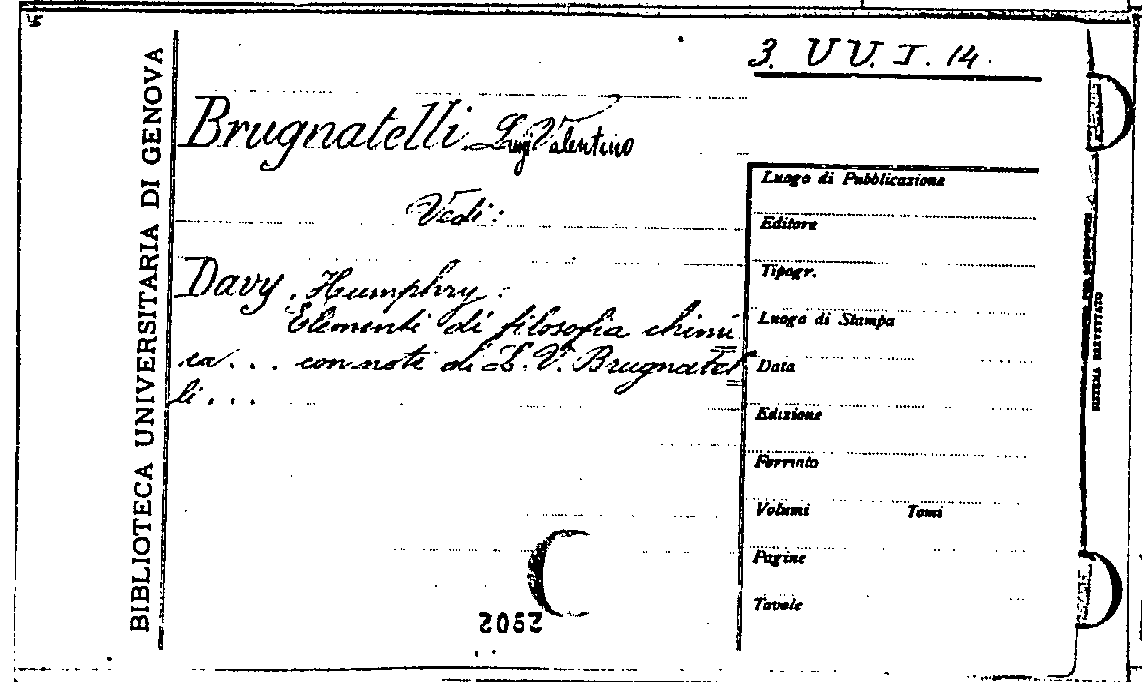 3. U U. I. 14.
BIBLIOTECA UNIVERSITARIA DI GENOVA
Brugnatelli Luigi Valentino
Vedi:
Davy, Humphry:
Elementi di filosofia chimi
ca... con note di L. V. Brugnatel
li...
Luogo di Pubblicazione
Editore
Tipogr.
Luogo di Stampa
Data
Edizione
Formato
Volumi Tomi
Pagine
Tavole
SISTEMA BREVETTATO